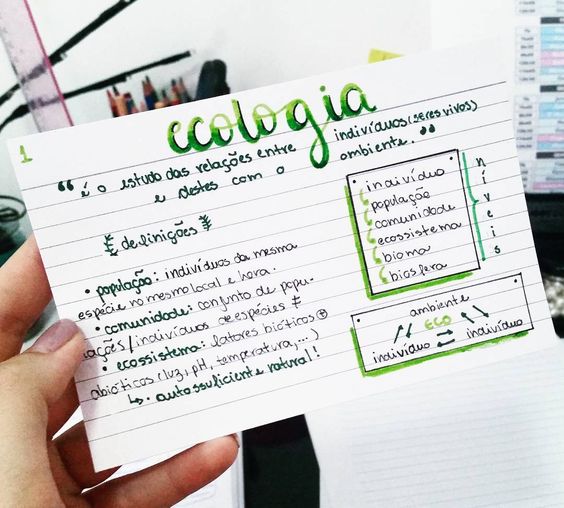 1
ecologia
“ é o estudo das relações entre indivíduos (seres vivos)
e destes com o ambiente. ”
definições
• população: indivíduos da mesma
espécie no mesmo local e hora.
• comunidade: conjunto de popu-
lações/indivíduos de espécies ≠
• ecossistema: fatores bióticos ⊕
abióticos (luz, pH, temperatura,...)
↳ autossuficiente natural!
indivíduo
população
comunidade
ecossistema
bioma
biosfera
níveis
ambiente
ECO
indivíduo indivíduo